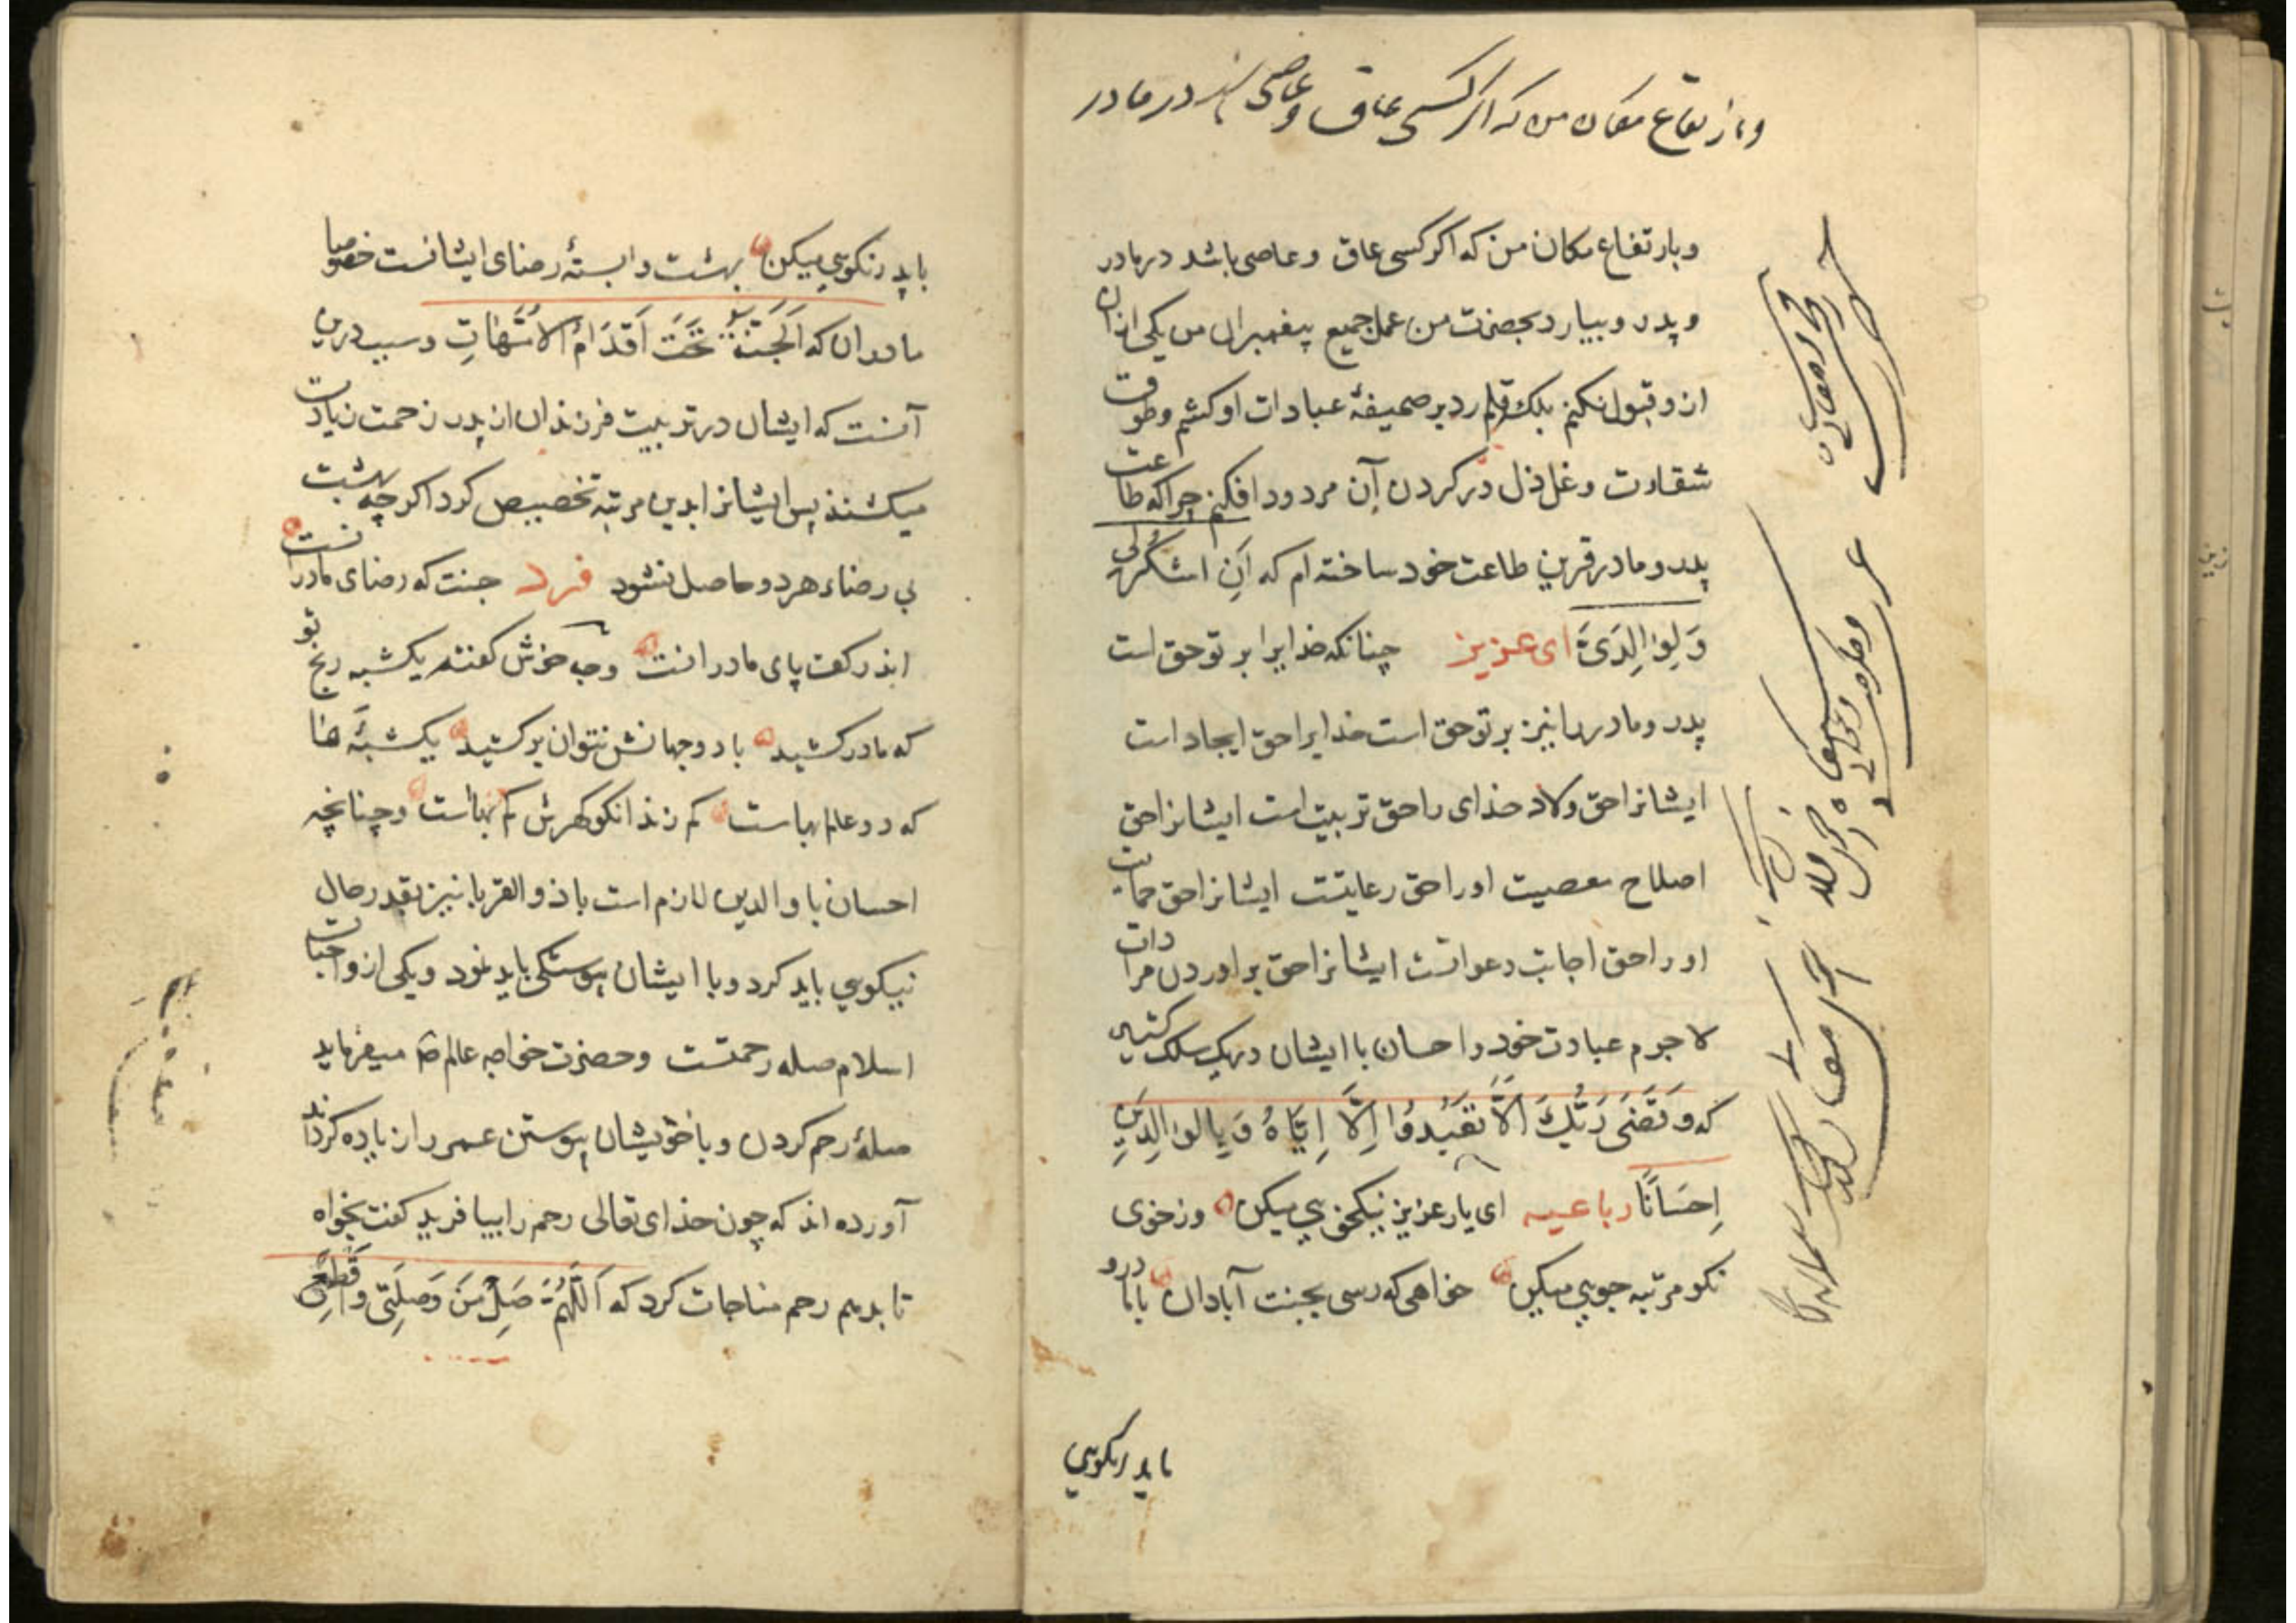 وبارتفاع مکان من که اکر کسی عاق و عاصی باشد در مادر
وبارتفاع مکان من که اکر کسی عاق و عاصی باشد در مادر
و پدر و بیارد بحضرت من عمل جمیع پیغمبران من یکی ازان
ازو قبول نکنم بلک قلم رد بر صحیفهٔ عبادات او کشم وطوق
شقاوت وغل ذل در کردن آن مردود افکنم چراکه طاعت
پدر و مادر قرین طاعت خود ساخته ام که اَنِ اشکُرلِی
وَلِوَالِدَیَّ ای عزیز چنانکه خدایرا بر تو حق است
پدر و مادر را نیز بر تو حق است خدایرا حق ایجاد است
ایشانرا حق ولاد خدای را حق تربیت است ایشانرا حق
اصلاح معصیت اورا حق رعایتست ایشانرا حق حمایت
اورا حق اجابت دعواتست ایشانرا حق براوردن مرادات
لاجرم عبادت خود و احسان با ایشان دریک سلک کشید
که وَقَضَی رَبُّكَ اَلَّا تَعبُدُوا اِلَّا اِیَّاهُ وَبِالوَالِدَینِ
اِحسَانًا رباعیه ای یار عزیز نیکخویی میکن وز خوی
نکو مرتبه جویی میکن خواهی که رسی بجنت آبادان با مادرو
با پدر نکویی
با پدر نکویی میکن بهشت وابستهٔ رضای ایشانست خصوصا
مادران که اَلجَنَّةُ تَحتَ اَقدَامِ الاُمَّهَاتِ وسبب درین
آنست که ایشان در تربیت فرزندان از پدر زحمت زیادت
میکشند پس ایشانرا بدین مرتبه تخصیص کرد اکرچه بهشت
بی رضاء هردو حاصل نشود فرد جنت که رضای مادرانست
اندر کف پای مادرانست وچه خوش کفته یکشبه رنج تو
که مادر کشید با دوجهانش نتوان برکشید یکشبهٔ
که دو عالم بهاست کم زند انکو کهرش کم بهاست وچنانچه
احسان با والدین لازم است با ذو القربا نیز بقدر حال
نیکویی باید کرد و با ایشان پیوستکی باید نمود ویکی از واجبات
اسلام صله رحمتست وحضرت خواجه عالم میفرماید
صلهٔ رحم کردن و با خویشان پیوستن عمر را زیاده کرداند
آورده اند که چون خدای تعالی رحم را بیافرید کفت بخواه
تا بدهم رحم مناجات کرد که اَللّٰهُمَّ صِل مَن وَصَلَنِی وَاقطَع